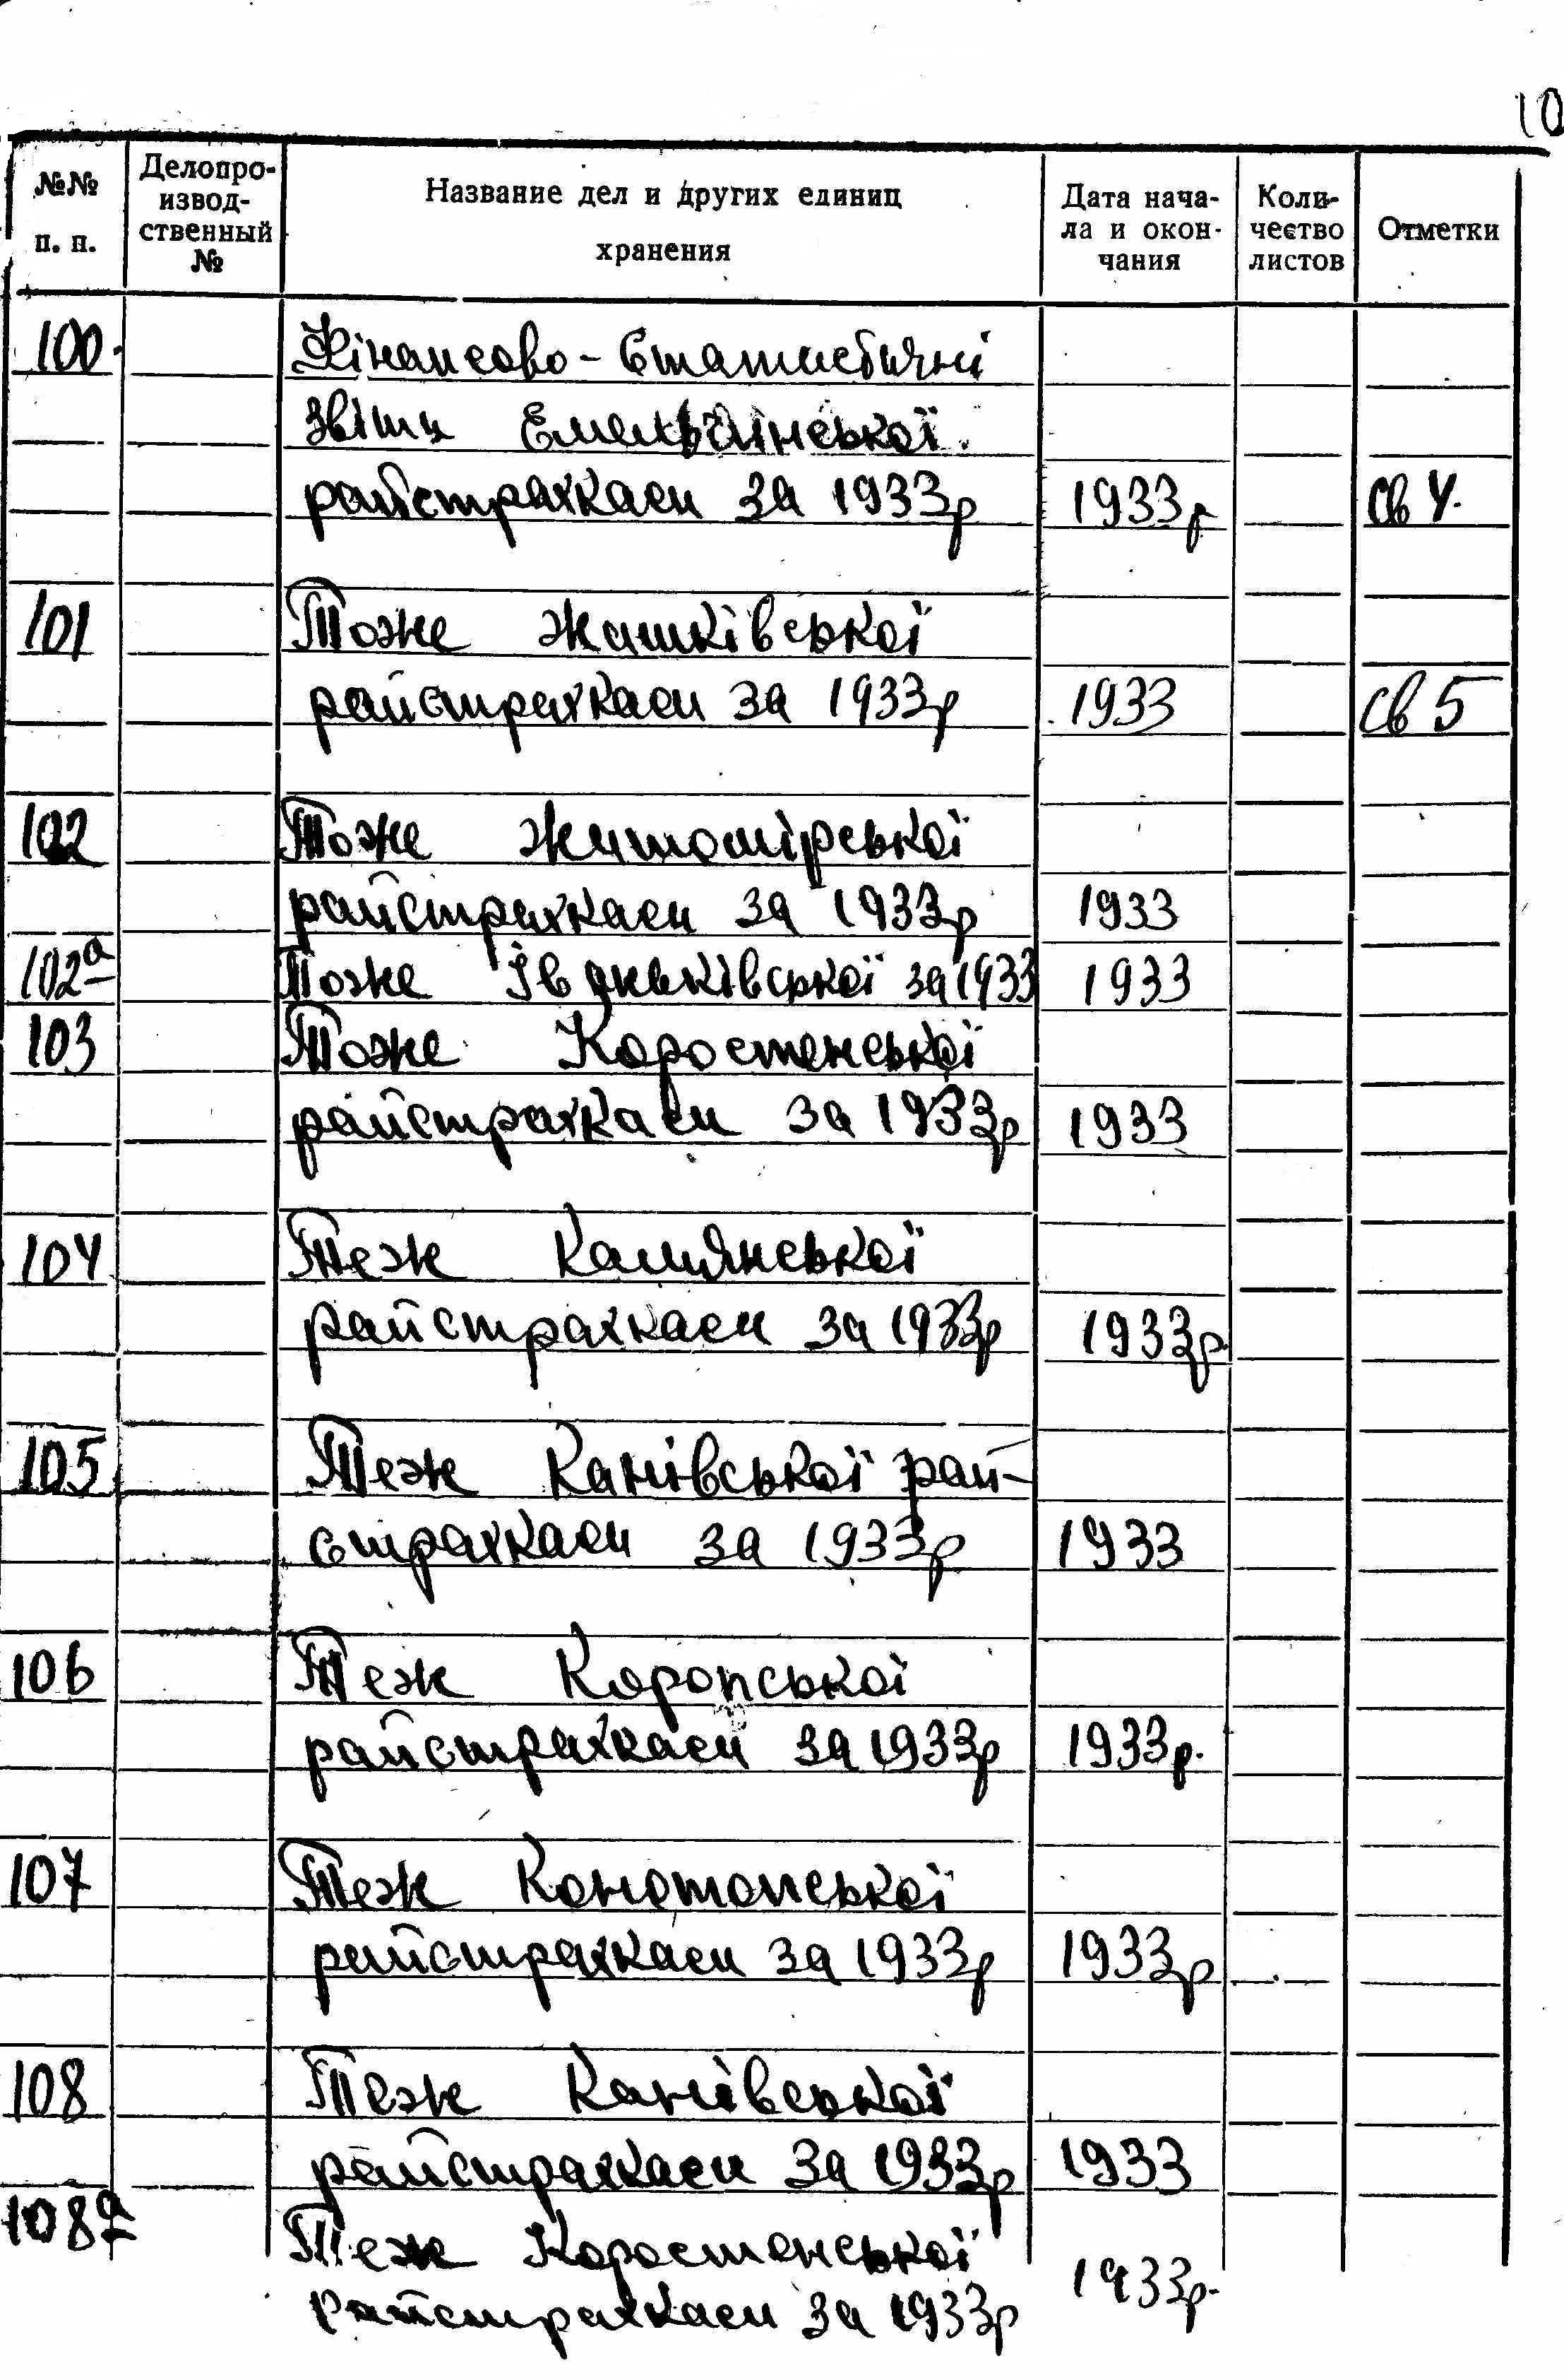 10
№№ п. п.
Делопро-
извод-
ственный
№
Название дел и других единиц
хранения
Дата нача-
ла и окон-
чания
Коли-
чество
листов
Отметки
100. Фінансово-Статистичні
звіти Емельчінської
райстрахкаси за 1933р 1933р св 4.
101 Тоже Жашківської
райстрахкаси за 1933р 1933 св 5
102 Тоже Житомірської
райстрахкаси за 1933р 1933
102а Тоже Іваньківської за 1933 1933
103 Тоже Коростенської
райстрахкаси за 1933р 1933
104 Теж Камянської
райстрахкаси за 1933р 1933р.
105 Теж Канівської рай-
страхкаси за 1933р 1933
106 Теж Коропської
райстрахкаси за 1933р 1933р.
107 Теж Конотопської
райстрахкаси за 1933р 1933р
108 Теж Канівської
райстрахкаси за 1933р 1933
108а Теж Коростенської
райстрахкаси за 1933р 1933р.